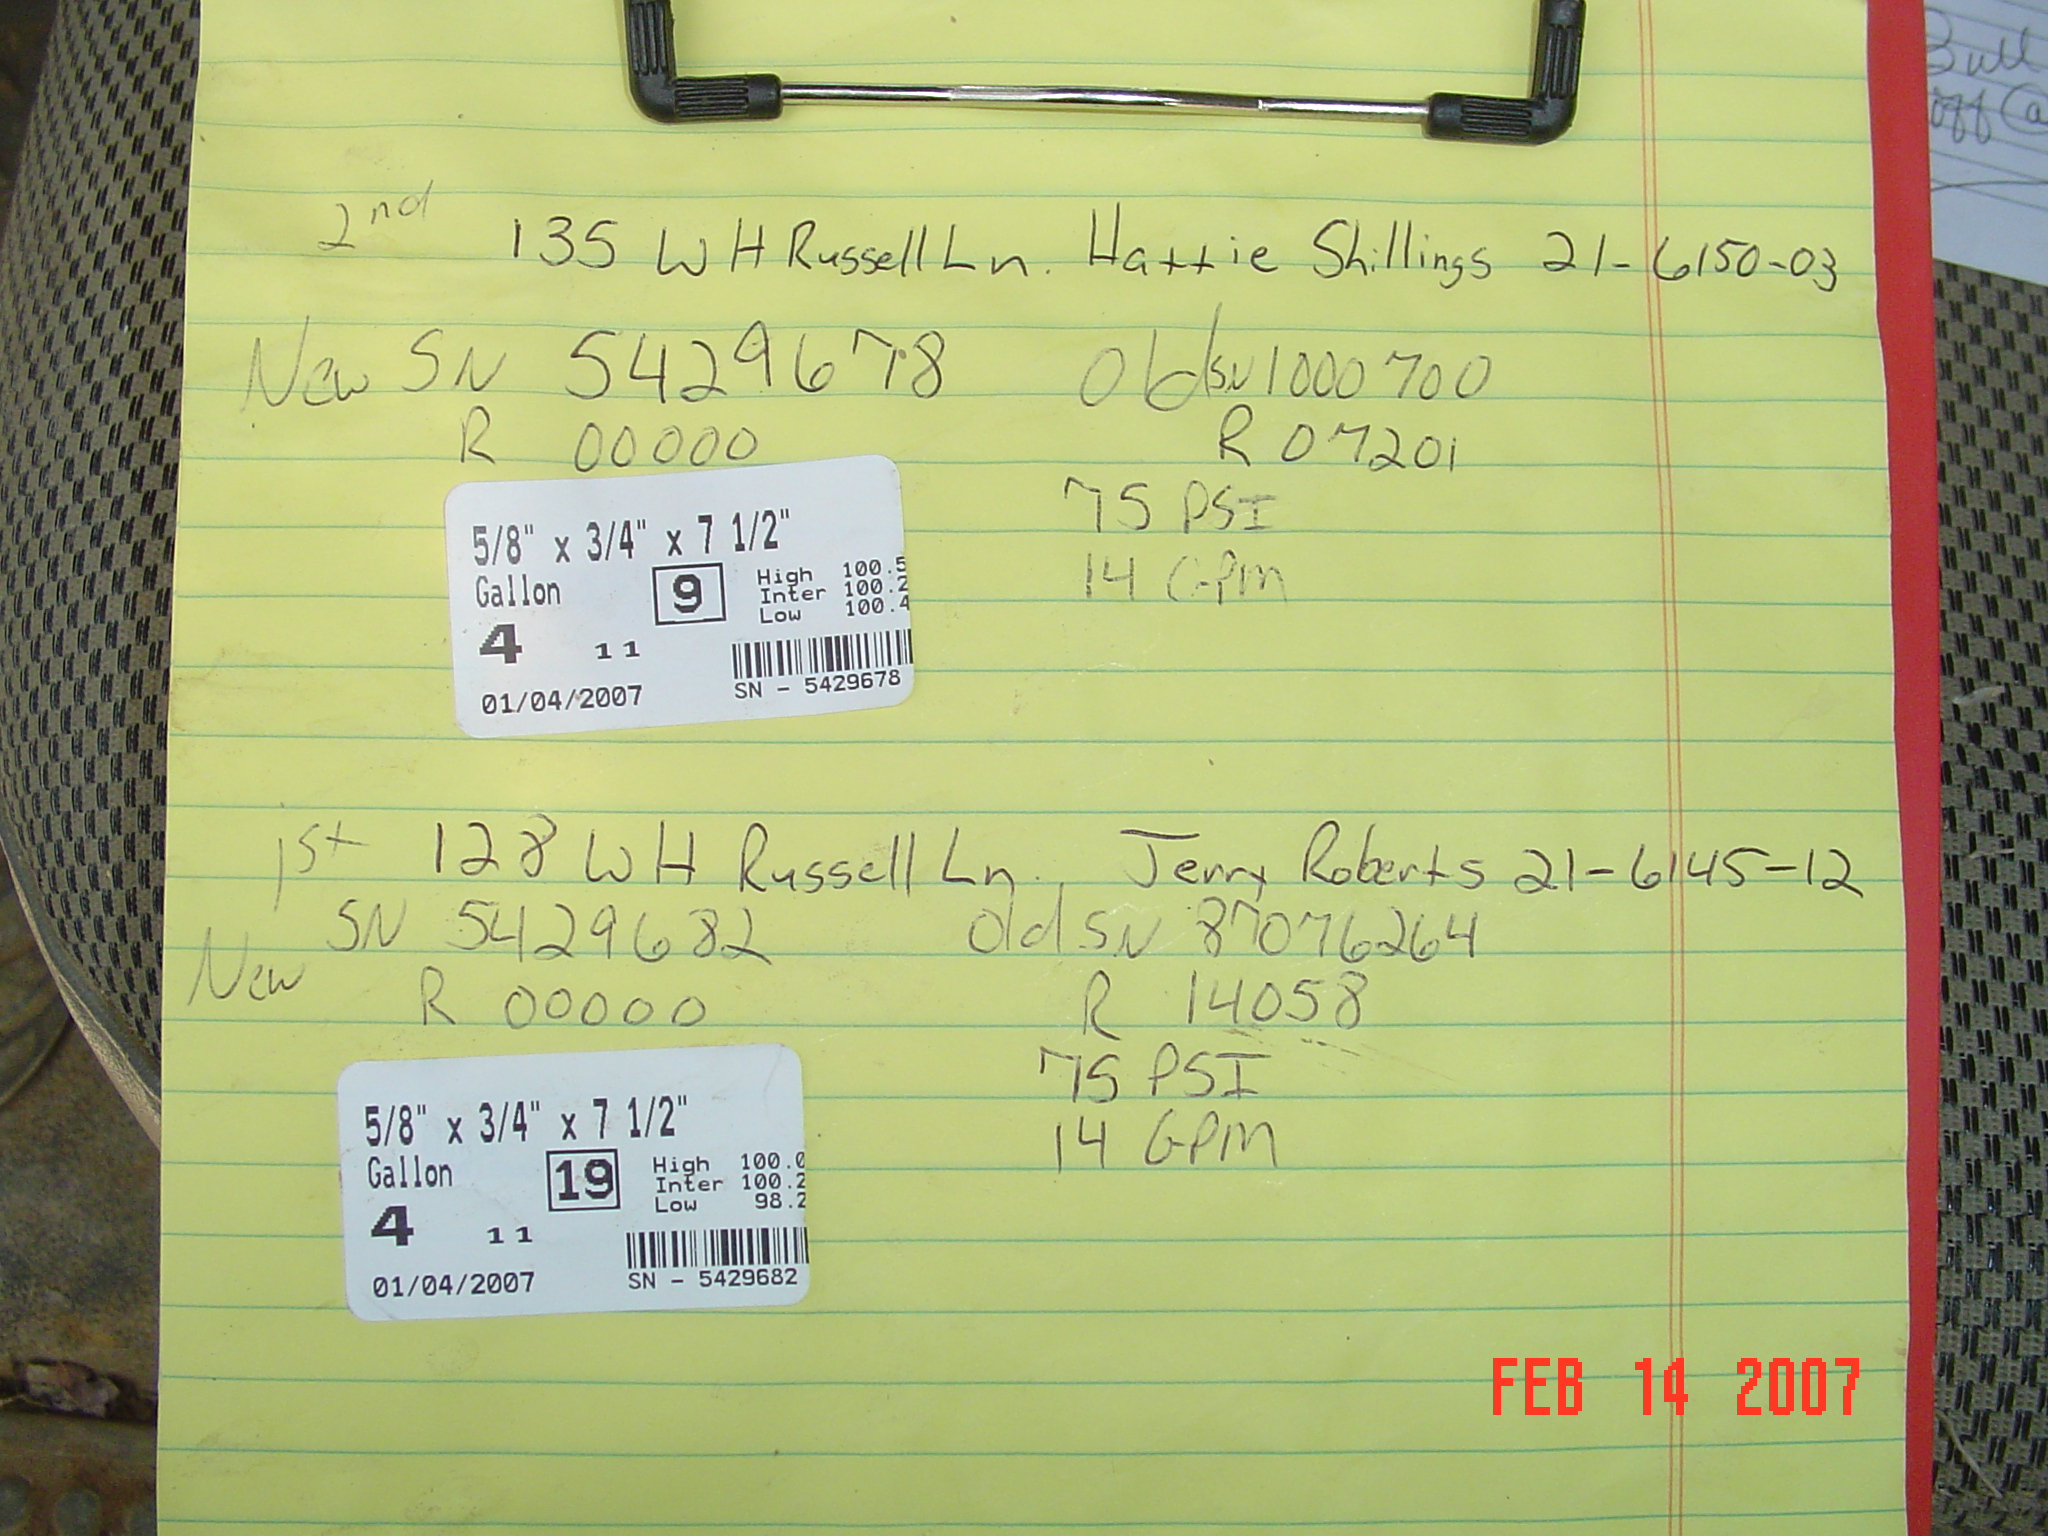 Bull
off Ca
2nd 135 W H Russell Ln. Hattie Shillings 21-6150-03
New SN 5429678 Old SN 1000700
R 00000 R 07201
75 PSI
14 GPM
5/8" x 3/4" x 7 1/2"
Gallon 9 High 100.5
Inter 100.2
Low 100.4
4 11
01/04/2007 SN - 5429678
1st 128 W H Russell Ln. Jerry Roberts 21-6145-12
New SN 5429682 Old SN 87076264
R 00000 R 14058
75 PSI
14 GPM
5/8" x 3/4" x 7 1/2"
Gallon 19 High 100.0
Inter 100.2
Low 98.2
4 11
01/04/2007 SN - 5429682
FEB 14 2007